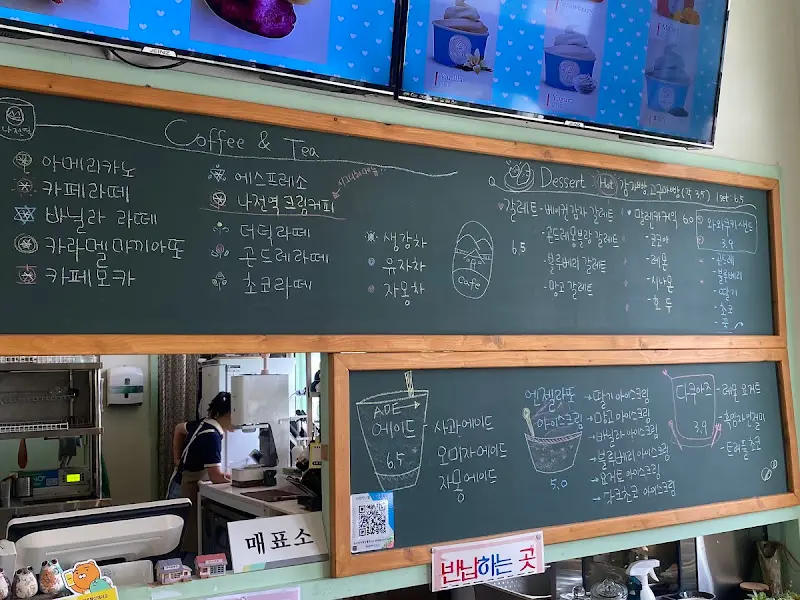 나전역
Coffee & Tea
아메리카노
카페라떼
바닐라 라떼
카라멜마끼아또
카페모카
에스프레소
나전역 크림커피
더덕라떼
곤드레라떼
초코라떼
생강차
유자차
자몽차
Cafe
Dessert
Hot 감자빵 고구마빵 (각 3.5) 1 set 6.5
갈레트
6.5
- 베이컨감자 갈레트
- 블루베리 갈레트
- 망고 갈레트
6.0
- 코코아
- 레몬
- 시나몬
- 호두
와와쿠키샌드
3.9
- 곤드레
- 블루베리
- 딸기
- 초코
ADE
에이드
6.5
사과에이드
오미자에이드
자몽에이드
엔젤라또
아이스크림
5.0
→ 딸기 아이스크림
→ 망고 아이스크림
→ 바닐라 아이스크림
→ 블루베리 아이스크림
→ 요거트 아이스크림
→ 다크초코 아이스크림
다쿠아즈
3.9
- 레몬 요거트
- 흑임자인절미
- 트러플초코
매표소
반납하는 곳